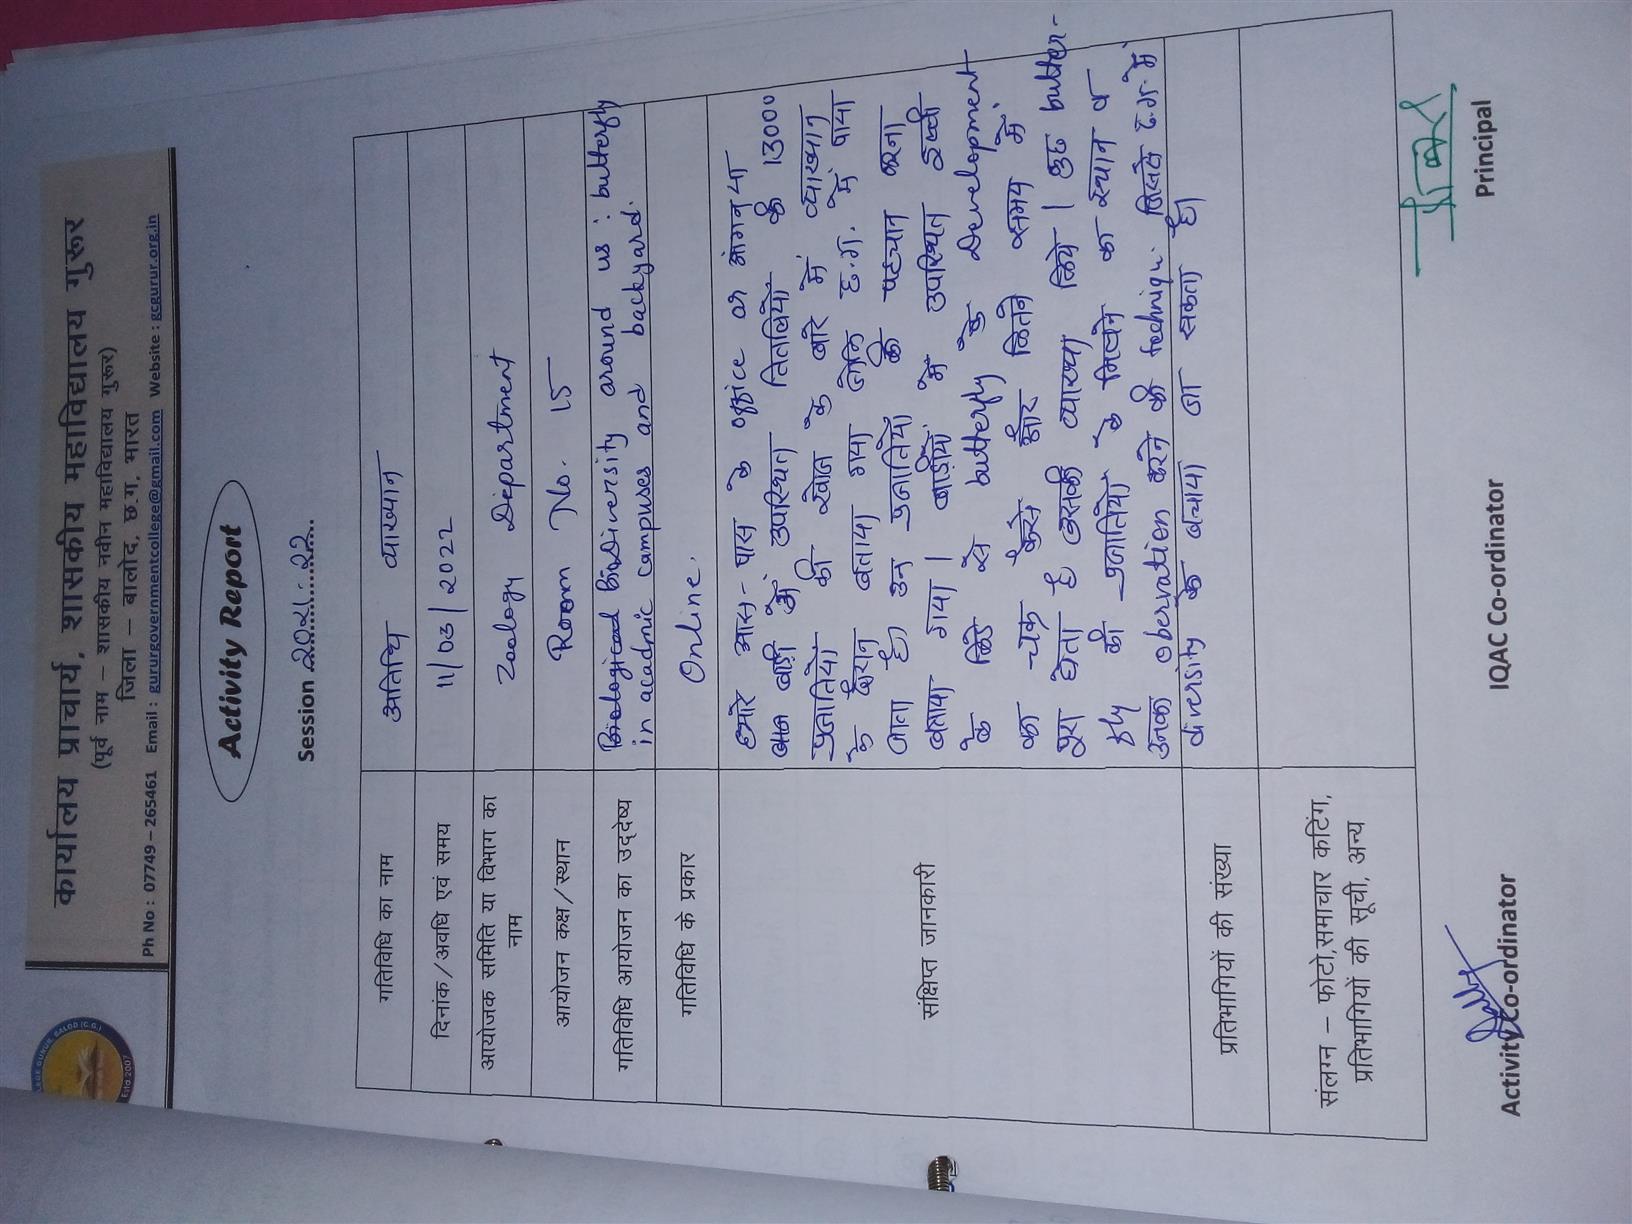 कार्यालय प्राचार्य, शासकीय महाविद्यालय गुरूर
(पूर्व नाम – शासकीय नवीन महाविद्यालय गुरूर)
जिला – बालोद, छ.ग. भारत
Ph No : 07749 – 265461 Email : gururgovernmentcollege@gmail.com Website : gcgurur.org.in
Activity Report
Session 2021-22
गतिविधि का नाम अतिथि व्याख्यान
दिनांक/अवधि एवं समय 11/03/2022
आयोजक समिति या विभाग का
नाम
Zoology Department
आयोजन कक्ष/स्थान Room No. 15
गतिविधि आयोजन का उद्देष्य
Biodiversity around us : butterfly
in acadmic campuses and backyard.
गतिविधि के प्रकार Online.
संक्षिप्त जानकारी
हमारे आस-पास के office or आंगन या
बाड़ी में उपस्थित तितलियों की 13000
प्रजातियो की खोज के बारे में व्याख्यान
के दौरान बताया गया छ.ग. में पाया
जाता है। उन प्रजातियों की पहचान करना
बताया गया। में उपस्थित
के से butterfly के Development
का चक्र कैसे और कितने समय में
पूरा होता है उसकी व्याख्या किये। कुछ butter-
fly की प्रजातियो के मिलने का स्थान व
उनका obervation करने की technique जिससे छ.ग. में
diversity के बचाया जा सकता है।
प्रतिभागियों की संख्या
संलग्न – फोटो,समाचार कटिंग,
प्रतिभागियों की सूची, अन्य
Activity Co-ordinator IQAC Co-ordinator Principal